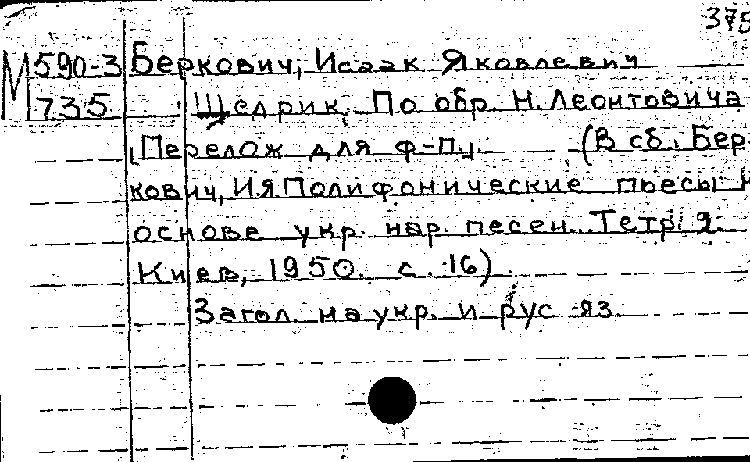 375
М 590-3 Беркович, Исаак Яковлевич
735 Щедрик. По обр. Н. Леонтовича
(Перелож для ф-п). (В сб. Бер
кович, И Я Полифонические пьесы н
основе укр. нар. песен. Тетр. 2.
Киев, 1950. с. 16)
Загол. на укр. и рус яз.